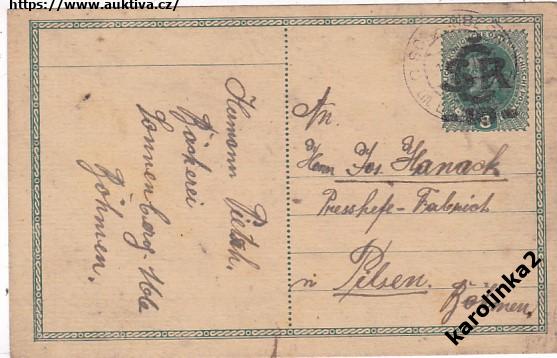 https://www.auktiva.cz/
Hermann Pietsch.
Bäckerei
Sonnenberg 166
Böhmen.
An
Herrn Jos. Hanack
Presshefe-Fabrick
in Pilsen.
Böhmen.
ČSR
karolinka2